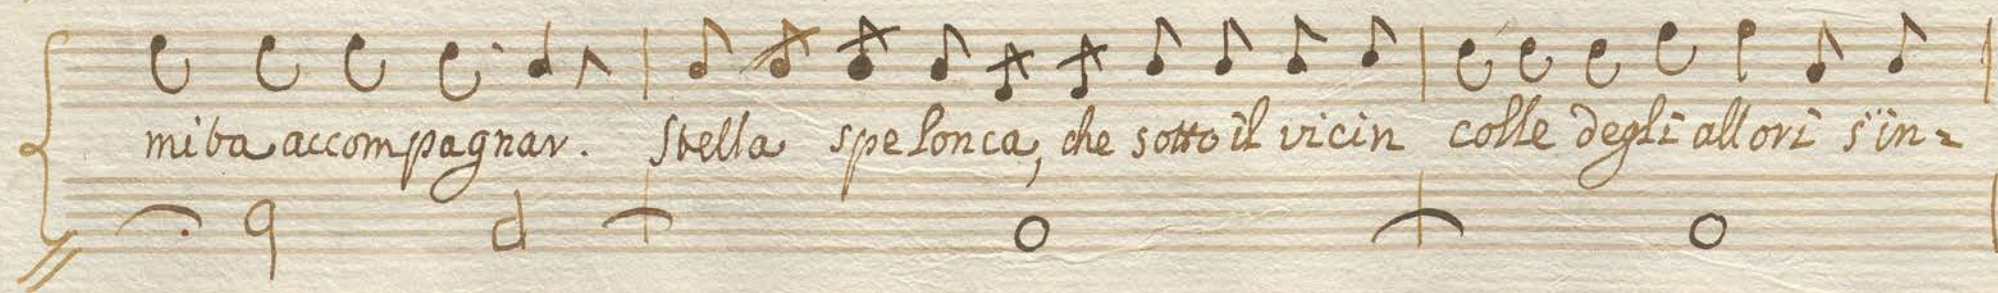 miba accompagnar. Stella spelonca, che sotto il vicin colle degli allori s'in=